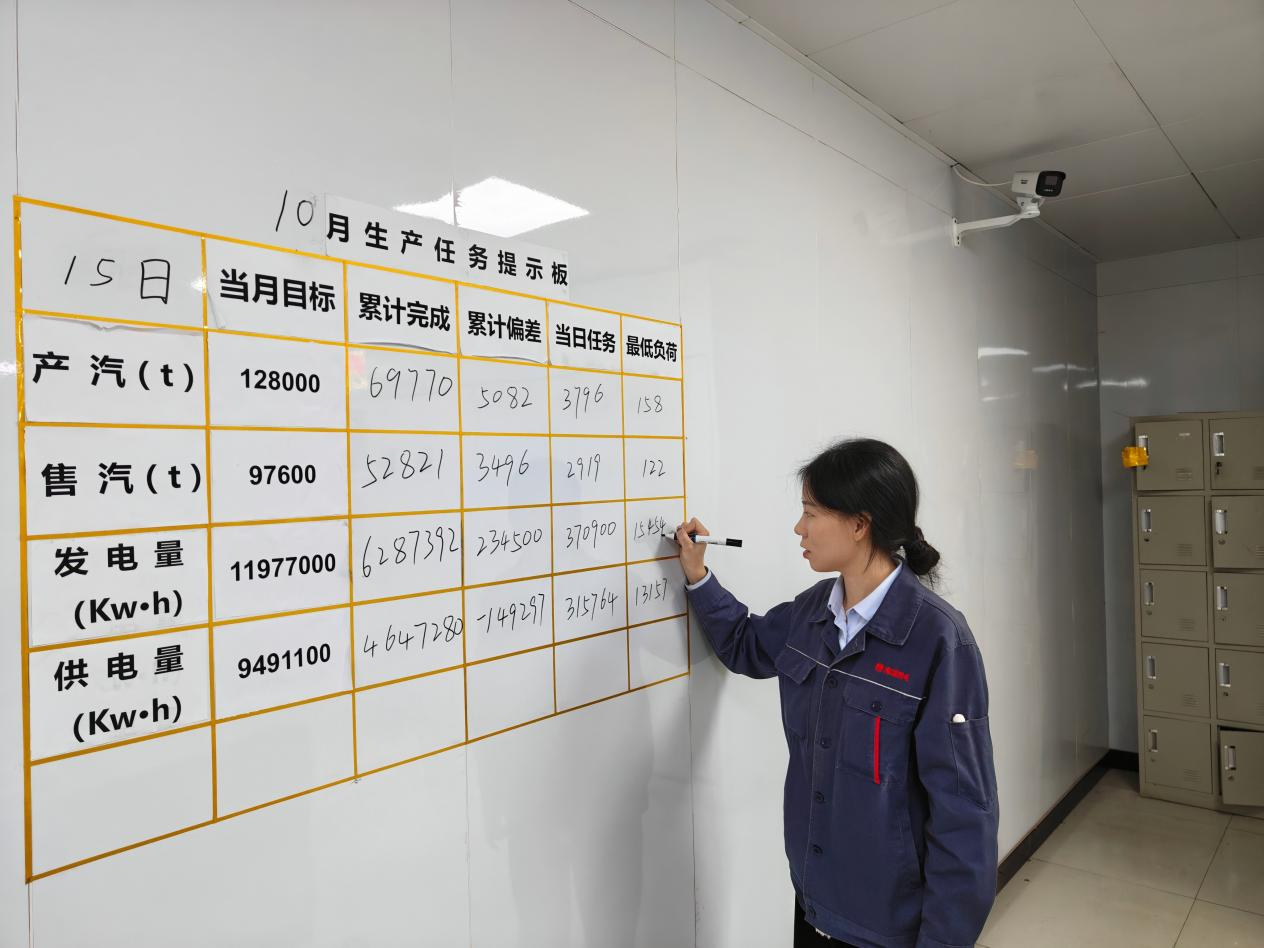 10月生产任务提示板
15日 当月目标 累计完成 累计偏差 当日任务 最低负荷
产汽(t) 128000 69770 5082 3796 158
售汽(t) 97600 52821 3496 2919 122
发电量(Kw•h) 11977000 6287392 234500 370900 15454
供电量(Kw•h) 9491100 4647280 -149297 315764 13157